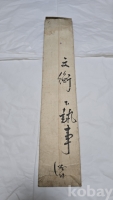 文衡 下執事
kobay